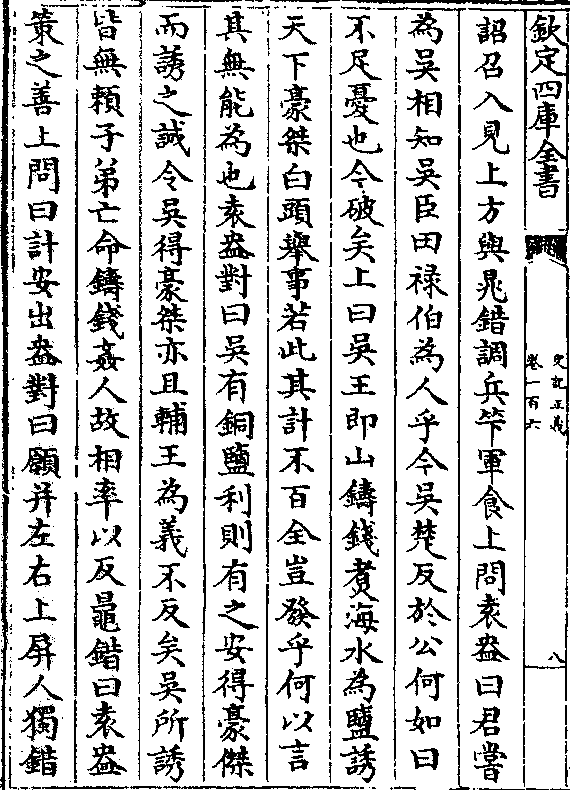 欽定四庫全書
史記正義
卷一百六
八
詔召入見上方與鼂錯調兵笇軍食上問袁盎曰君嘗
為吳相知吳臣田禄伯為人乎今吳楚反於公何如曰
不足憂也今破矣上曰吳王即山鑄錢煮海水為鹽誘
天下豪桀白頭舉事若此其計不百全豈發乎何以言
其無能為也袁盎對曰吳有銅鹽利則有之安得豪傑
而誘之誠令吳得豪桀亦且輔王為義不反矣吳所誘
皆無賴子弟亡命鑄錢姦人故相率以反鼂錯曰袁盎
策之善上問曰計安出盎對曰願并左右上屏人獨錯